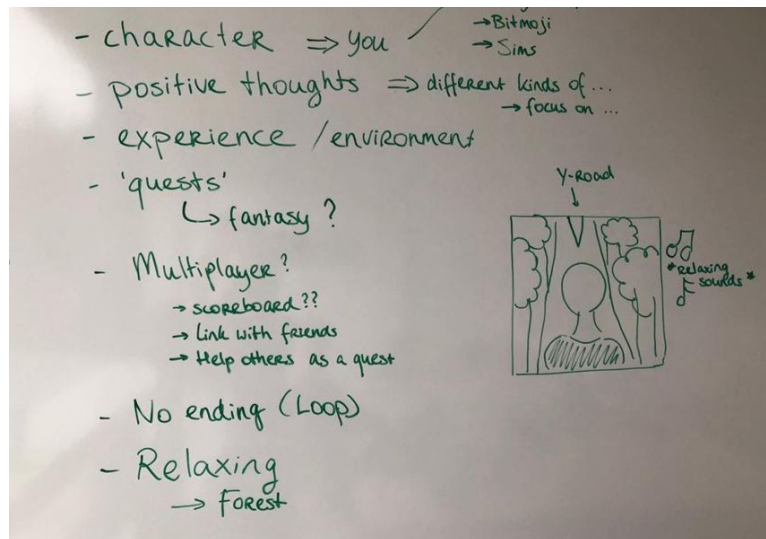 - character ⇒ you
→ Bitmoji
→ Sims
- positive thoughts ⇒ different kinds of ...
→ focus on ...
- experience / environment
- 'quests'
↳ fantasy ?
- Multiplayer ?
→ scoreboard ??
→ Link with friends
→ Help others as a quest
- No ending (Loop)
- Relaxing
→ Forest
Y-Road
*Relaxing
sounds*